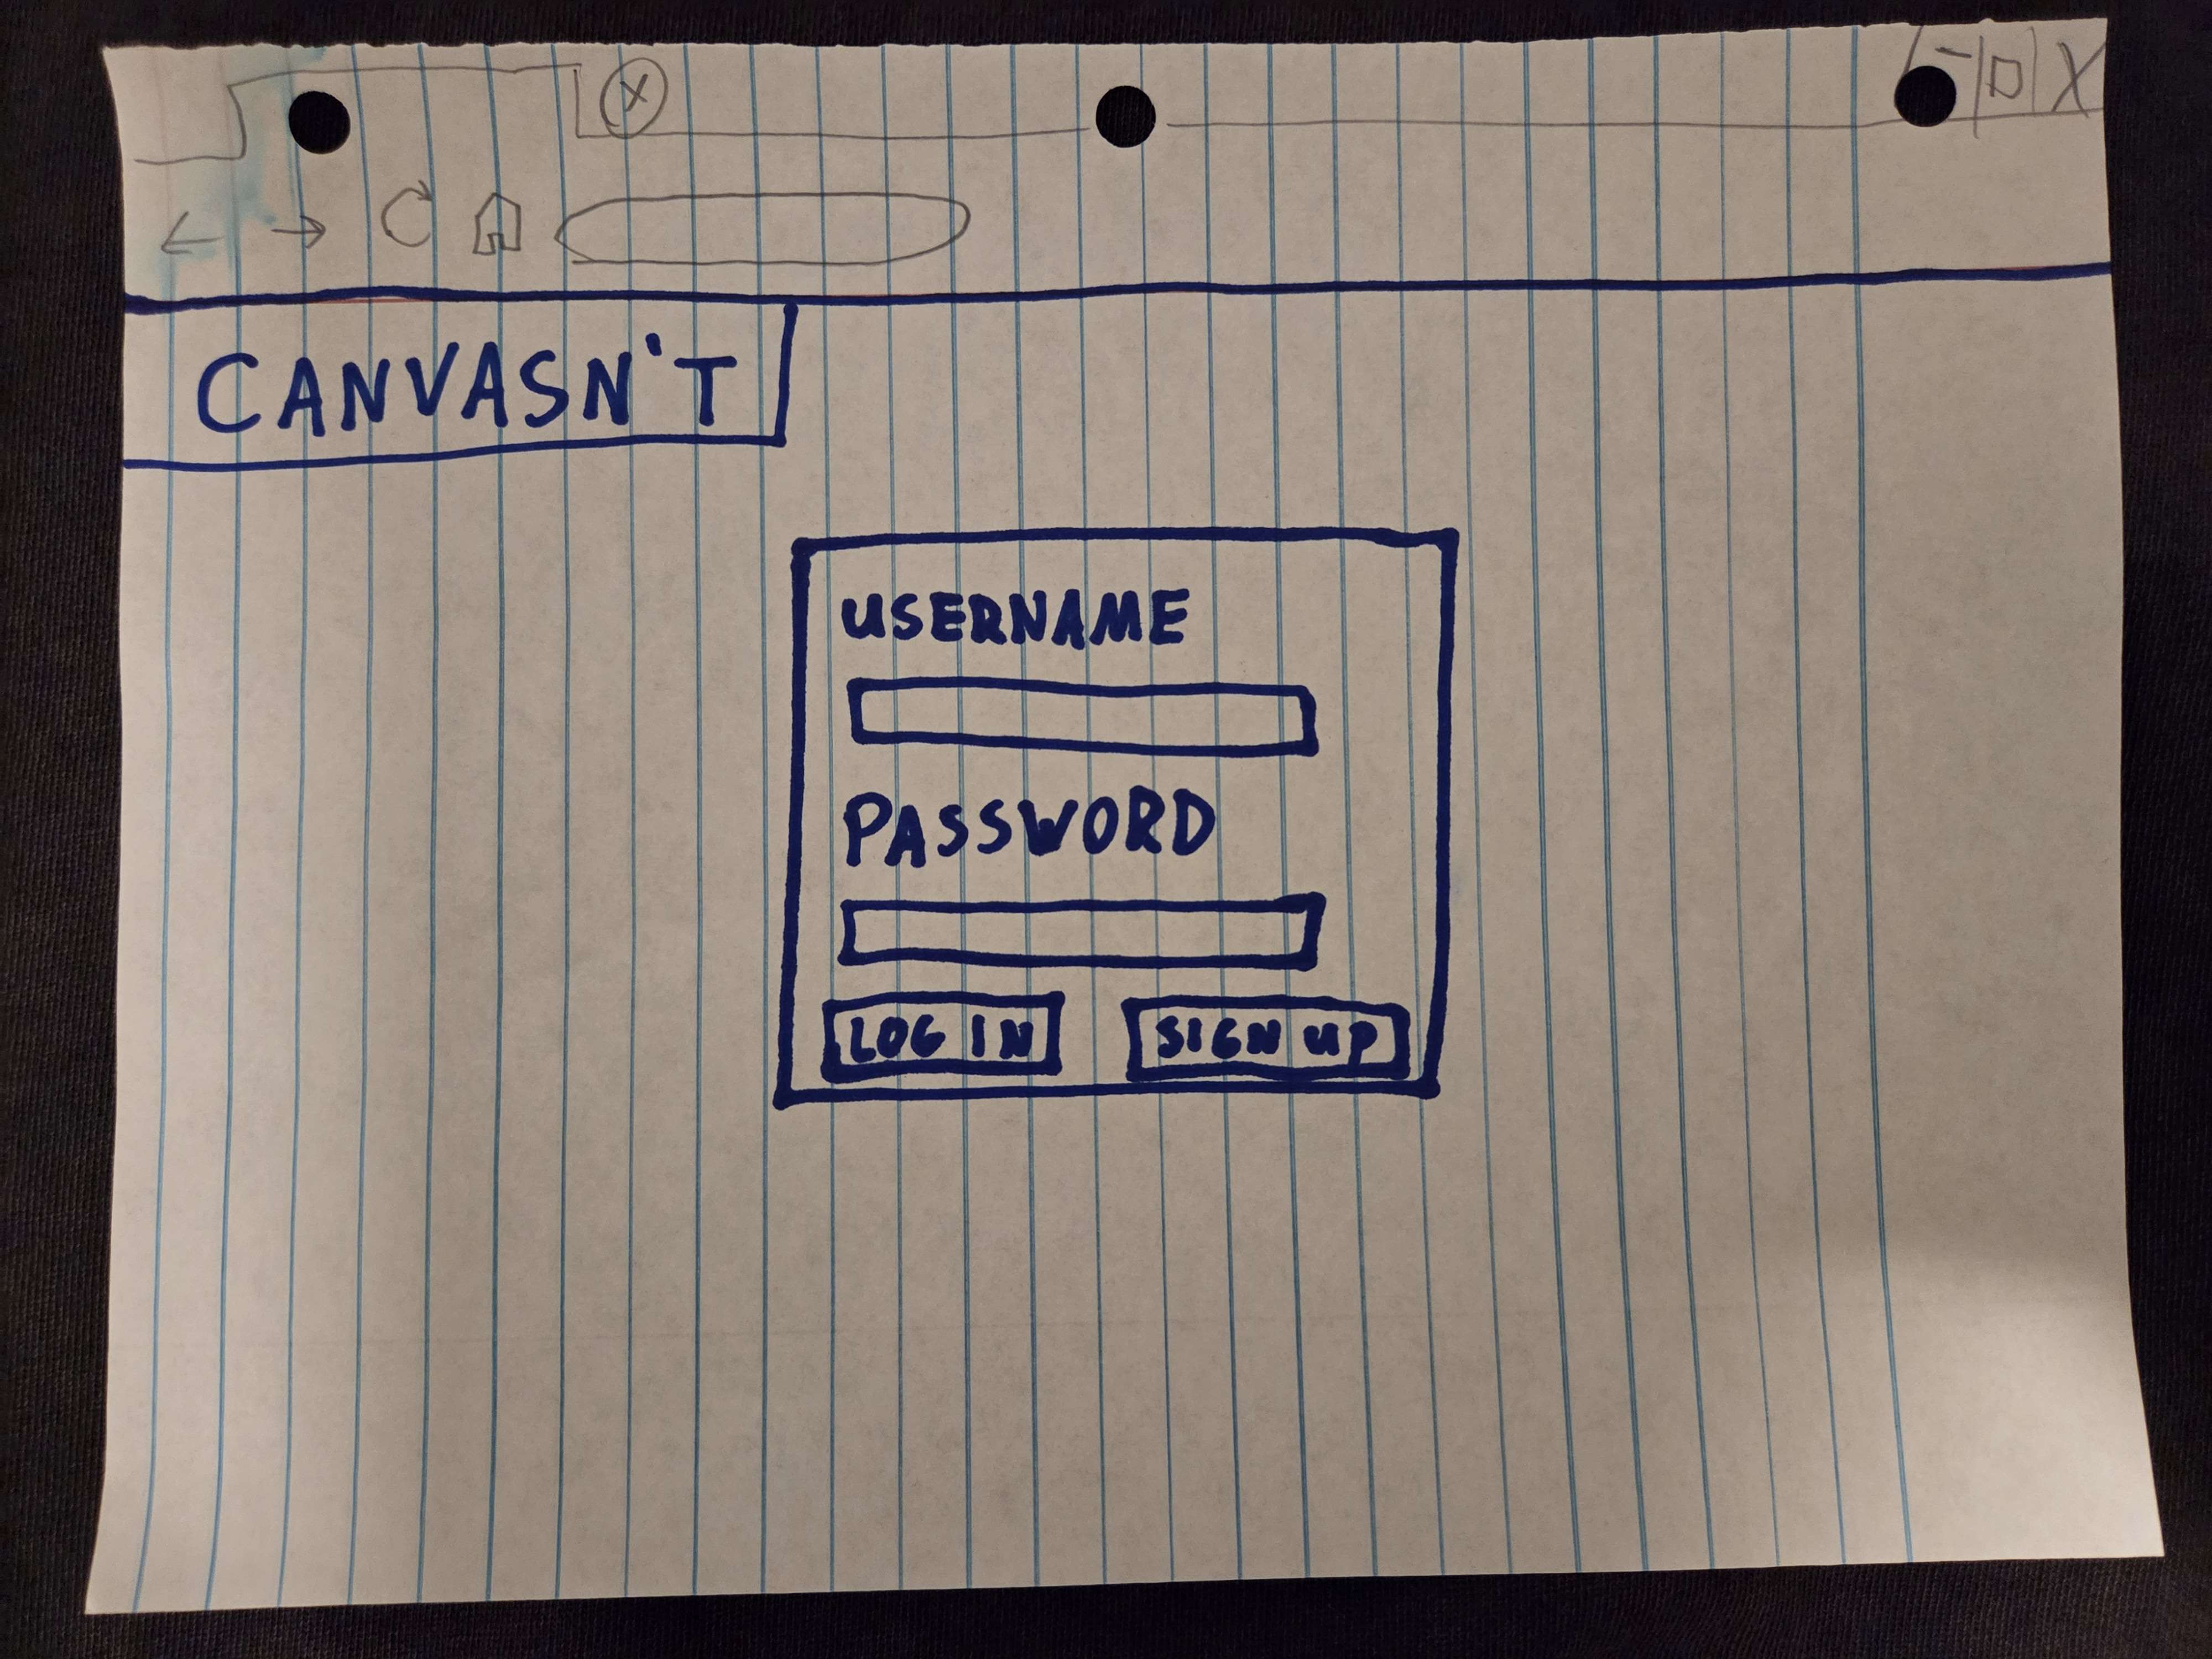 CANVASN'T
USERNAME
PASSWORD
LOG IN
SIGN UP